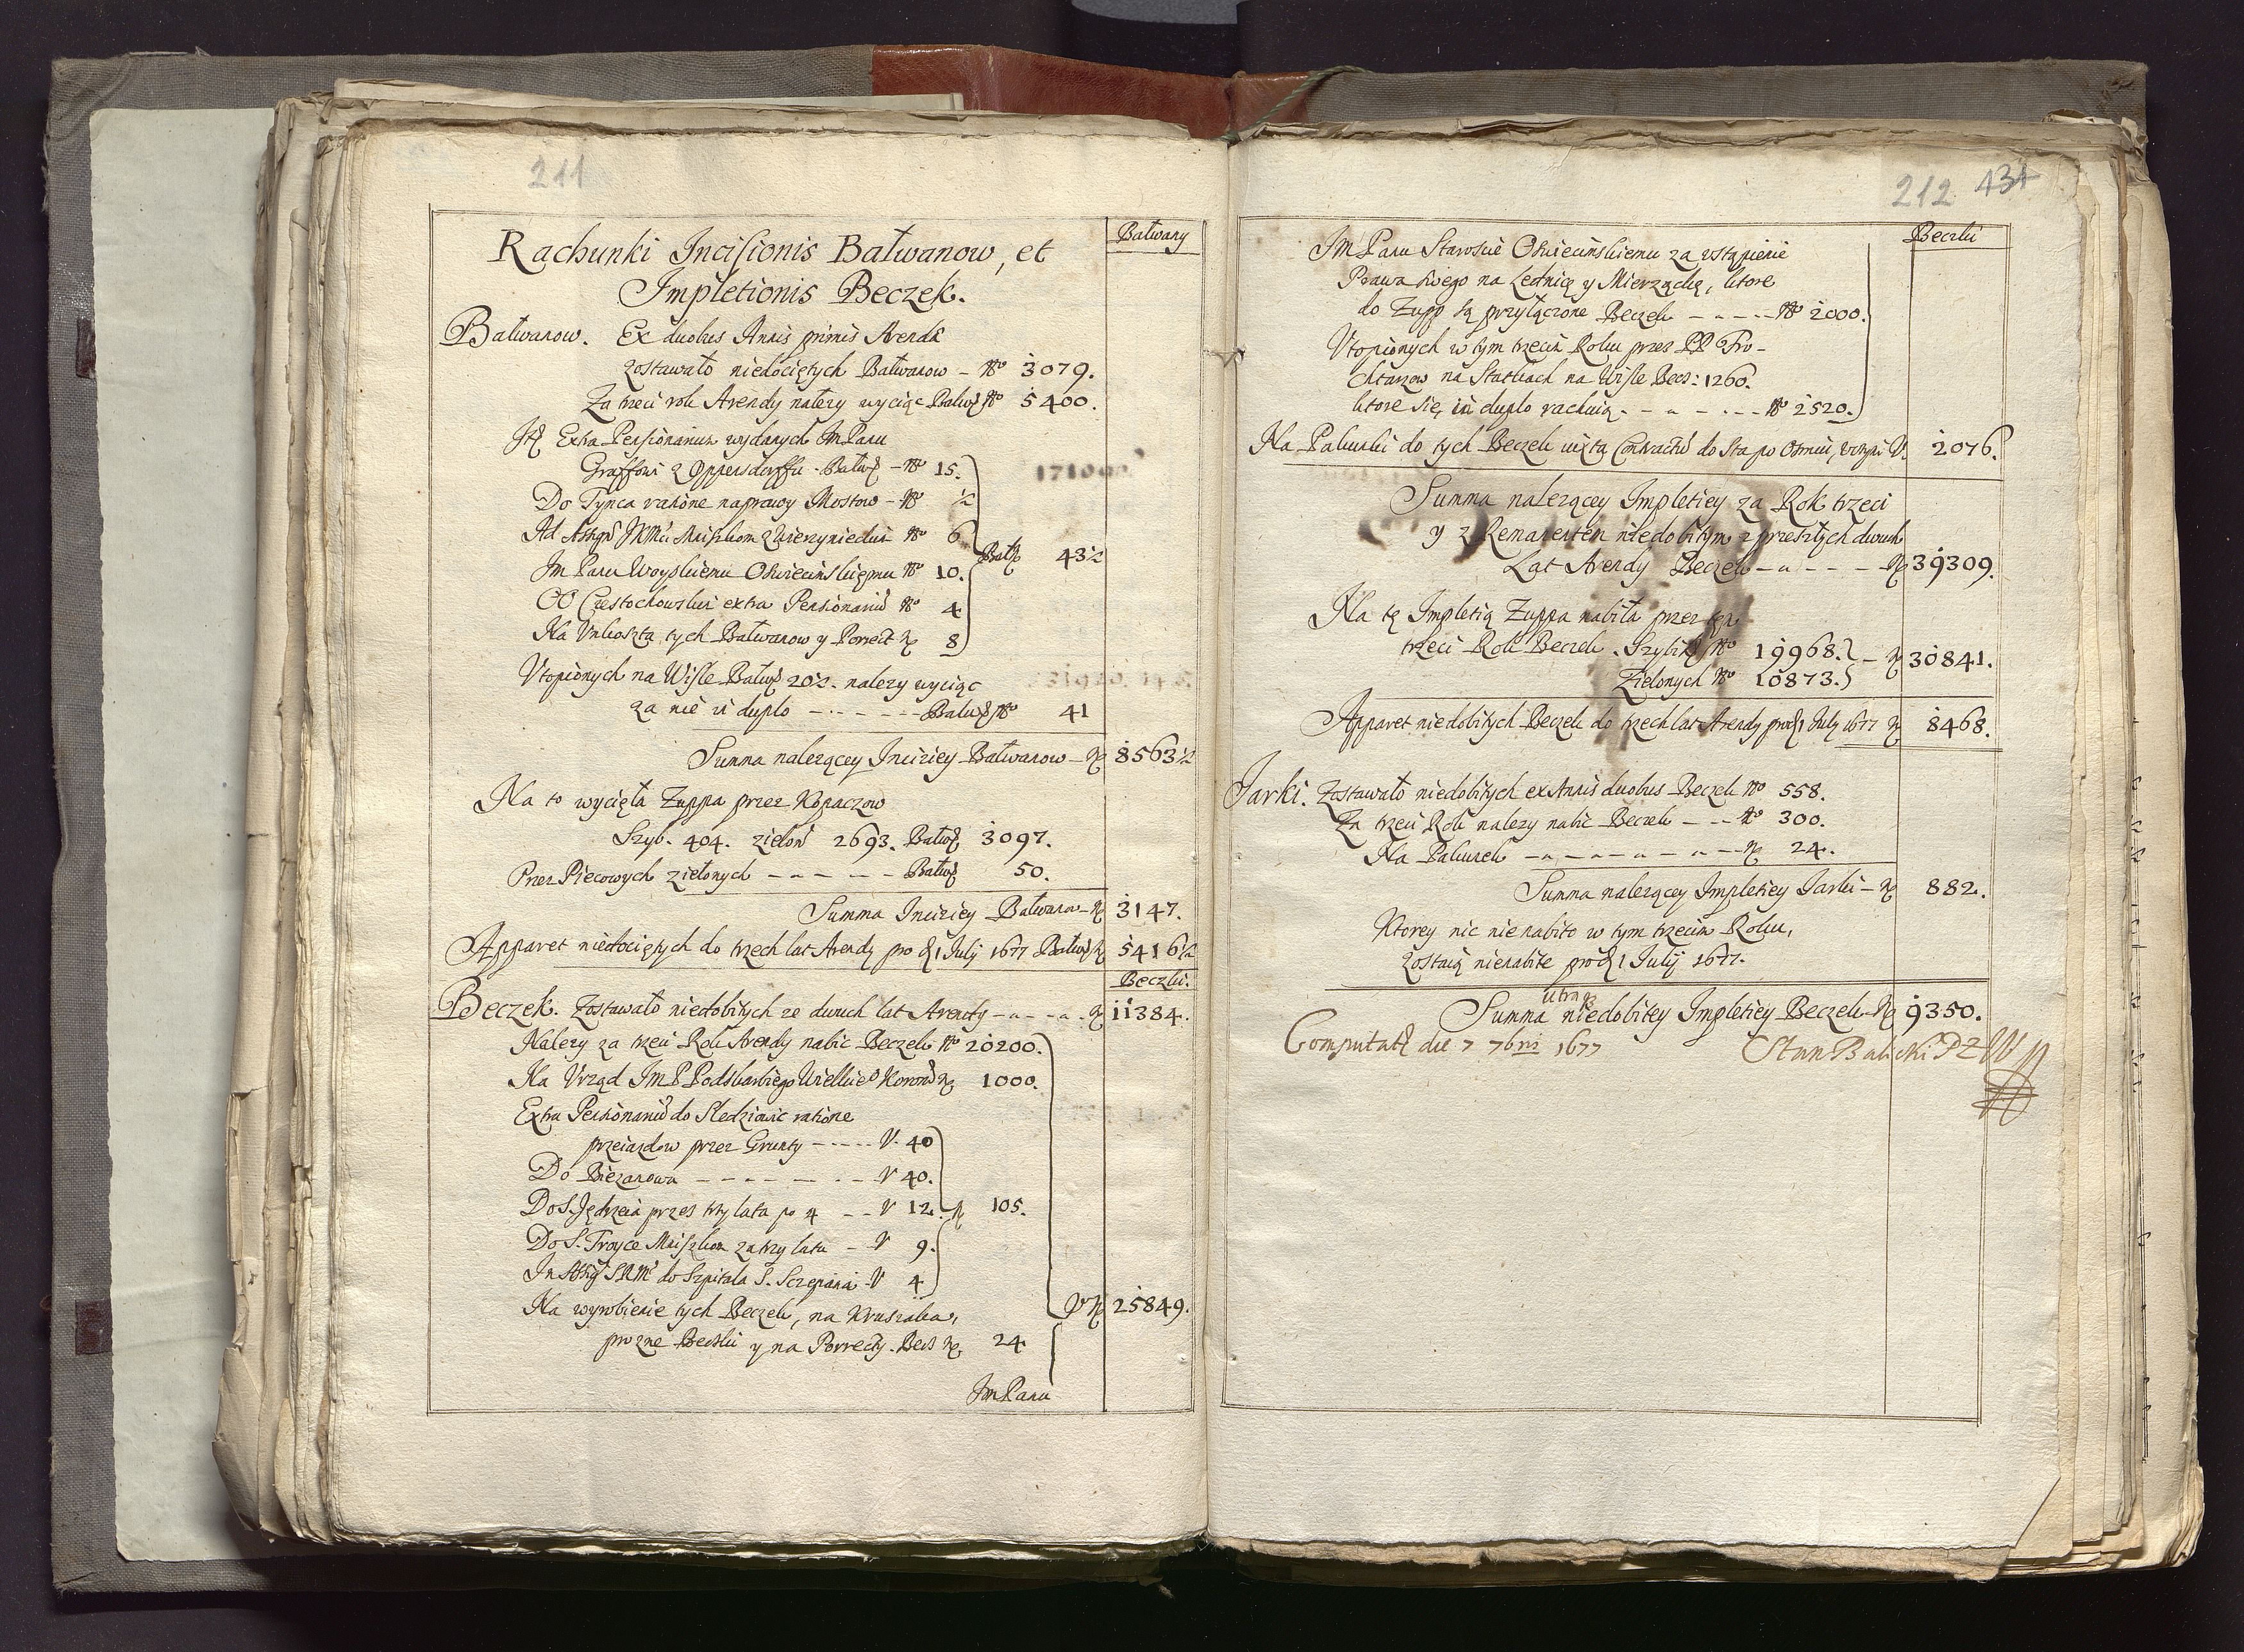 211
Bałwany
Rachunki Incisionis Bałwanow, et
Impletionis Beczek.
Bałwanow. Ex duobus Annis primis Arendæ
zostawało niedociętych Bałwanow - No 3079.
Za trzeci rok Arendy należy wyciąc Bałw No 5400.
Extra Pensionarium wydanych Im Panu
Graffowi z Oppersdorffu - Bałw - No 15.
Do Tynca ratione naprawy Mostow - No ½
Ad Assign JKMci Mniszkom Zwierzynieckim No 6
Bałw 43½
Im Panu Woyskiemu Oswiecimskiemu No 10.
OO Częstochowskim extra Pensionariu No 4
Na Unkoszta tych Bałwanow y Porrect No 8
Utopionych na Wisle Bałw 20½. nalezy wyciąc
za nie in duplo - - - - - Bałw No 41
Summa nalezącey Inciziey Bałwanow - No 8563½
Na to wycięła Zuppa przez Kopaczow
Szyb. 404. zielon 2693. Bałw 3097.
Przez Piecowych zielonych - - - - - Bałw 50.
Summa Inciziey Bałwanow - No 3147.
Apparet niedociętych do trzech lat Arendy pro 1 July 1677 Bałw No 5416½
Beczki.
Beczek. Zostawało niedobitych ze dwuch lat Arendy - - - - No 11384.
Nalezy za trzeci Rok Arendy nabic Beczek No 20200.
Na Vrząd Im P Podskarbiego Wielkie Koron No 1000.
Extra Pensionariu do Sledziowic ratione
przeiazdow przez Grunty - - - - - V. 40
Do Biezanowa - - - - - - - - V 40.
Do S. Jędrzeia przez trzy lata po 4 - - V 12. No 105.
Do S. Troyce Mniszkom za trzy lata - V 9.
In Assig SRM do Szpitala S. Sczepana - V 4
Na wyrobienie tych Beczek, na Kruszaka,
V No 25849.
prozne Beczki y na Porrecty. Becz No 24
Im Panu
212 431
Beczki
Im Panu Staroscie Oswiecimskiemu za ustąpienie
Prawa swego na Lednicę y Mierzączkę, ktore
do Zupp są przyłączone Beczek - - - - - No 2000.
Utopionych w tym trzecim Roku przez PP Fro-
chtarzow na Statkach na Wisle Becz: 1260.
ktore się in duplo rachuią - - - - - - - No 2520.
Na Pakunki do tych Beczek iuxta Contractu do Sta po Osmiu, V. 2076.
Summa nalezącey Impletiey za Rok trzeci
y z Remanentem niedobitym z przeszłych dwuch
Lat Arendy Beczek - - - - - No 39309.
Na tę Impletią Zuppa nabiła przez ten
trzeci Rok Beczek. Szybik No 19968. - No 30841.
Zielonych No 10873.
Apparet niedobitych Beczek do trzech lat Arendy pro 1 July 1677 No 8468.
Jarki. Zostawało niedobitych ex Annis duobus Beczek No 558.
Za trzeci Rok nalezy nabic Beczek - - - No 300.
Na Pakunek - - - - - - - - - No 24.
Summa nalezącey Impletiey Jarki - No 882.
Ktorey nic nie nabito w tym trzecim Roku,
zostaią nienabite pro 1 July 1677.
Summa niedobitey Impletiey Beczek No 9350.
Computat die 7 7bris 1677
Stan Balicki PZW